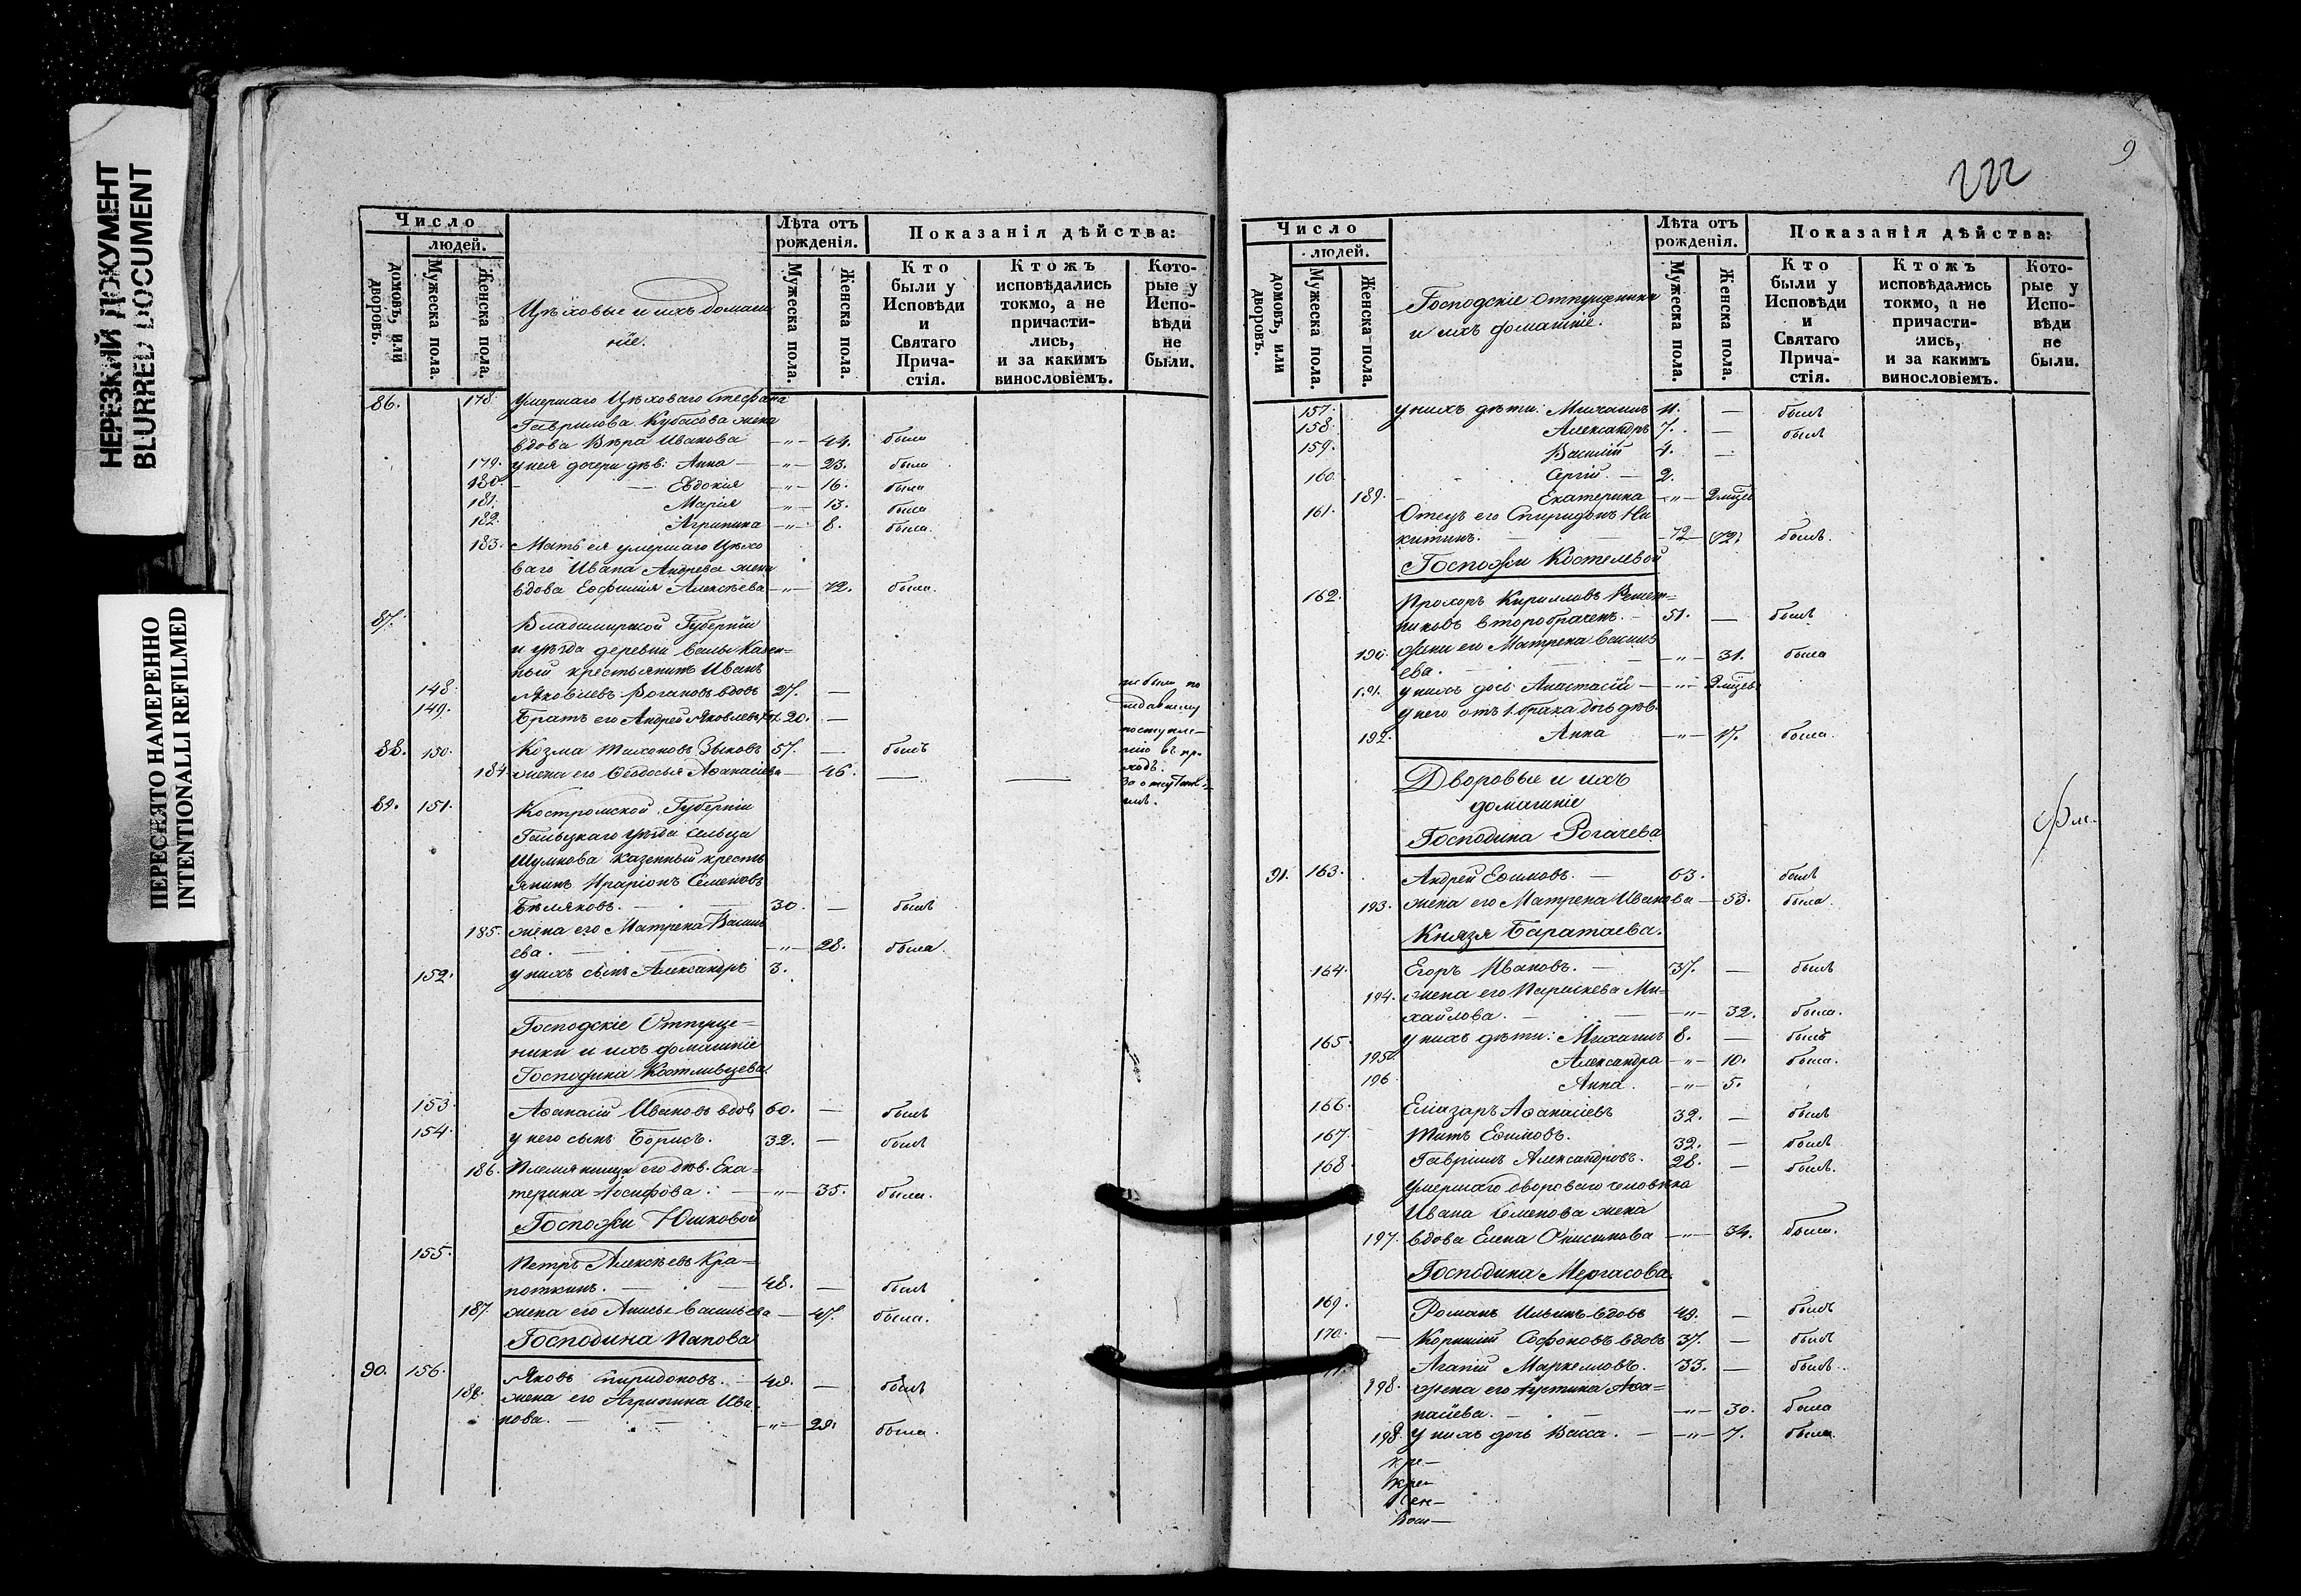 НЕРЕЗКИЙ ДОКУМЕНТ
BLURRED DOCUMENT
ПЕРЕСНЯТО НАМЕРЕННО
INTENTIONALLI REFILMED
Число
людей.
домовъ, или дворовъ.
Мужеска пола.
Женска пола.
Цѣховые и ихъ домаш
ніе.
Лѣта отъ рожденія.
Мужеска пола.
Женска пола.
Показанія дѣйства:
Кто были у Исповѣди и Святаго Прича-стія.
Ктожъ исповѣдались токмо, а не причасти-лись, и за какимъ винословіемъ.
Кото-рые у Испо-вѣди не были.
86. 178. Умершаго Цѣховаго Стефана
Гаврилова Кубасова жена
вдова Вѣра Иванова —"— 44. была
179. у нея дочери дѣв: Анна — —"— 23. была
180. — Евдокія —"— 16. была
181. Марія —"— 13. была
182. Агрипина —"— 8. была.
183. Мать ея умершаго Цѣхо
ваго Ивана Андреева жена
вдова Евфимія Алексѣева —"— 72. была.
87. Владимирской Губерніи
и уѣзда деревни Казен=
ный крестьянинъ Иванъ
148. Яковлевъ вдовъ 27. —
149. Братъ его Андрей Яковлевъ 20. —
не были по
недавнему
поступле-
нію въ при
ходъ.
88. 150. Козма Тихоновъ Зыковъ 57. — былъ
184. жена его Ѳеодосья Аѳанасіева — 46. — —
за отлучкою
89. 151. Костромской Губерніи
Галицкаго уѣзда сельца
Шумкова казенный кресть
янинъ Иларіонъ Семеновъ
Бѣляковъ. — 30. — былъ
185. жена его Матрена Василь
ева. — —"— 28. была.
152. у нихъ сынъ Александръ 3.
Господскіе Отпуще-
ники и ихъ домашніе
Господина Костливцева.
153. Аѳанасій Ивановъ вдовъ 60. — былъ
154. у него сынъ Борисъ. 32. — былъ
186. Племянница его дѣв. Ека=
терина Іосифова. —"— 35. была.
Госпожи Юшковой
155. Петръ Алексѣевъ Кра=
поткинъ. — 48. — былъ
187. жена его Анисья Васильева — 47. была.
Господина Панова
90. 156. Яковъ Спиридоновъ. — 40. — былъ
188. жена его Агрипина Ива
нова. — —"— 29. была.
9
222
Число
людей.
домовъ, или дворовъ.
Мужеска пола.
Женска пола.
Господскіе отпущенники
и ихъ домашніе.
Лѣта отъ рожденія.
Мужеска пола.
Женска пола.
Показанія дѣйства:
Кто были у Исповѣди и Святаго Прича-стія.
Ктожъ исповѣдались токмо, а не причасти-лись, и за какимъ винословіемъ.
Кото-рые у Испо-вѣди не были.
157. у нихъ дѣти: Михаилъ 11. — былъ
158. Александръ 7. — былъ
159. Василій 4. —
160. Сергій. — 2.
189. Екатерина —"— 2 мѣсец
161. Отецъ его Спиридонъ Ни
китинъ. — 72 72. былъ.
Госпожи Костелевой
162. Прохоръ Кирилловъ Решет=
никовъ второбраченъ. — 51. — былъ
190. жена его Матрена Василь
ева. — —"— 31. была
191. у нихъ дочь Анастасій — —"— 2 мѣсец
у него отъ 1. брака дочь дѣв.
192. Анна —"— 17. была.
Дворовые и ихъ
домашніе
Господина Рогачева
91. 163. Андрей Ефимовъ. — 63. былъ
193. жена его Матрена Иванова — 53. была.
Князя Баратаева.
164. Егоръ Ивановъ. — 37. — былъ
194. жена его Параскева Ми=
хайлова. — —"— 32. была.
165. у нихъ дѣти: Михаилъ 8. — былъ
195. Александра —"— 10. была.
196 Анна. —"— 5.
166. Елiазаръ Аѳанасіевъ 32. — былъ
167. Титъ Ефимовъ. 32. — былъ
168. Гавріилъ Александровъ. 28. — былъ.
Умершаго двороваго человѣка
Ивана Семенова жена
197. вдова Елена Онисимова —"— 34. была.
Господина Мергасова.
169. Романъ Ильинъ вдовъ 49. — былъ
170. — Корнилій Софоновъ вдовъ 37. — былъ
Агапій Маркелловъ. 33. — былъ.
198. жена его Іустина Аѳа=
насіева. — —"— 30. была
198. у нихъ дочь Васса. — —"— 7. была.